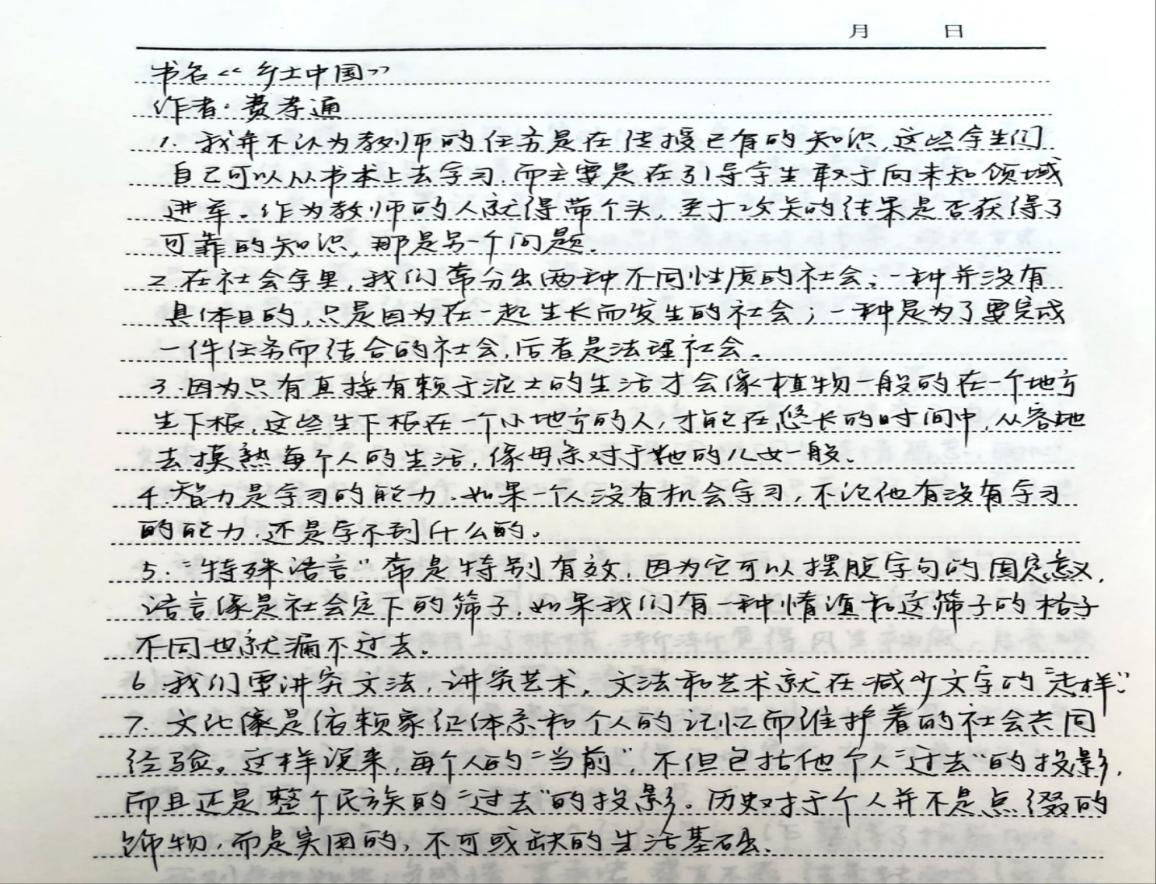 月 日
书名《乡土中国》
作者：费孝通
1.我并不认为教师的任务是在传授已有的知识，这些学生们
自己可以从书本上去学习，而主要是在引导学生敢于向未知领域
进军。作为教师的人就得带个头，至于攻关的结果是否获得了
可靠的知识，那是另一个问题。
2.在社会学里，我们常分出两种不同性质的社会：一种并没有
具体目的，只是因为在一起生长而发生的社会；一种是为了要完成
一件任务而结合的社会，后者是法理社会。
3.因为只有直接有赖于泥土的生活才会像植物一般的在一个地方
生下根，这些生下根在一个小地方的人，才能在悠长的时间中，从容地
去摸熟每个人的生活，像母亲对于她的儿女一般。
4.智力是学习的能力，如果一个人没有机会学习，不论他有没有学习
的能力，还是学不到什么的。
5."特殊语言"常是特别有效，因为它可以摆脱字句的固定意义，
语言像是社会定下的筛子，如果我们有一种情谊和这筛子的格子
不同也就漏不过去。
6.我们要讲究文法，讲究艺术，文法和艺术就在减少文字的"走样"。
7.文化像是依赖象征体系和个人的记忆而维护着的社会共同
经验。这样说来，每个人的"当前"，不但包括他个人"过去"的投影，
而且还是整个民族的"过去"的投影。历史对于个人并不是点缀的
饰物，而是实用的，不可或缺的生活基础。